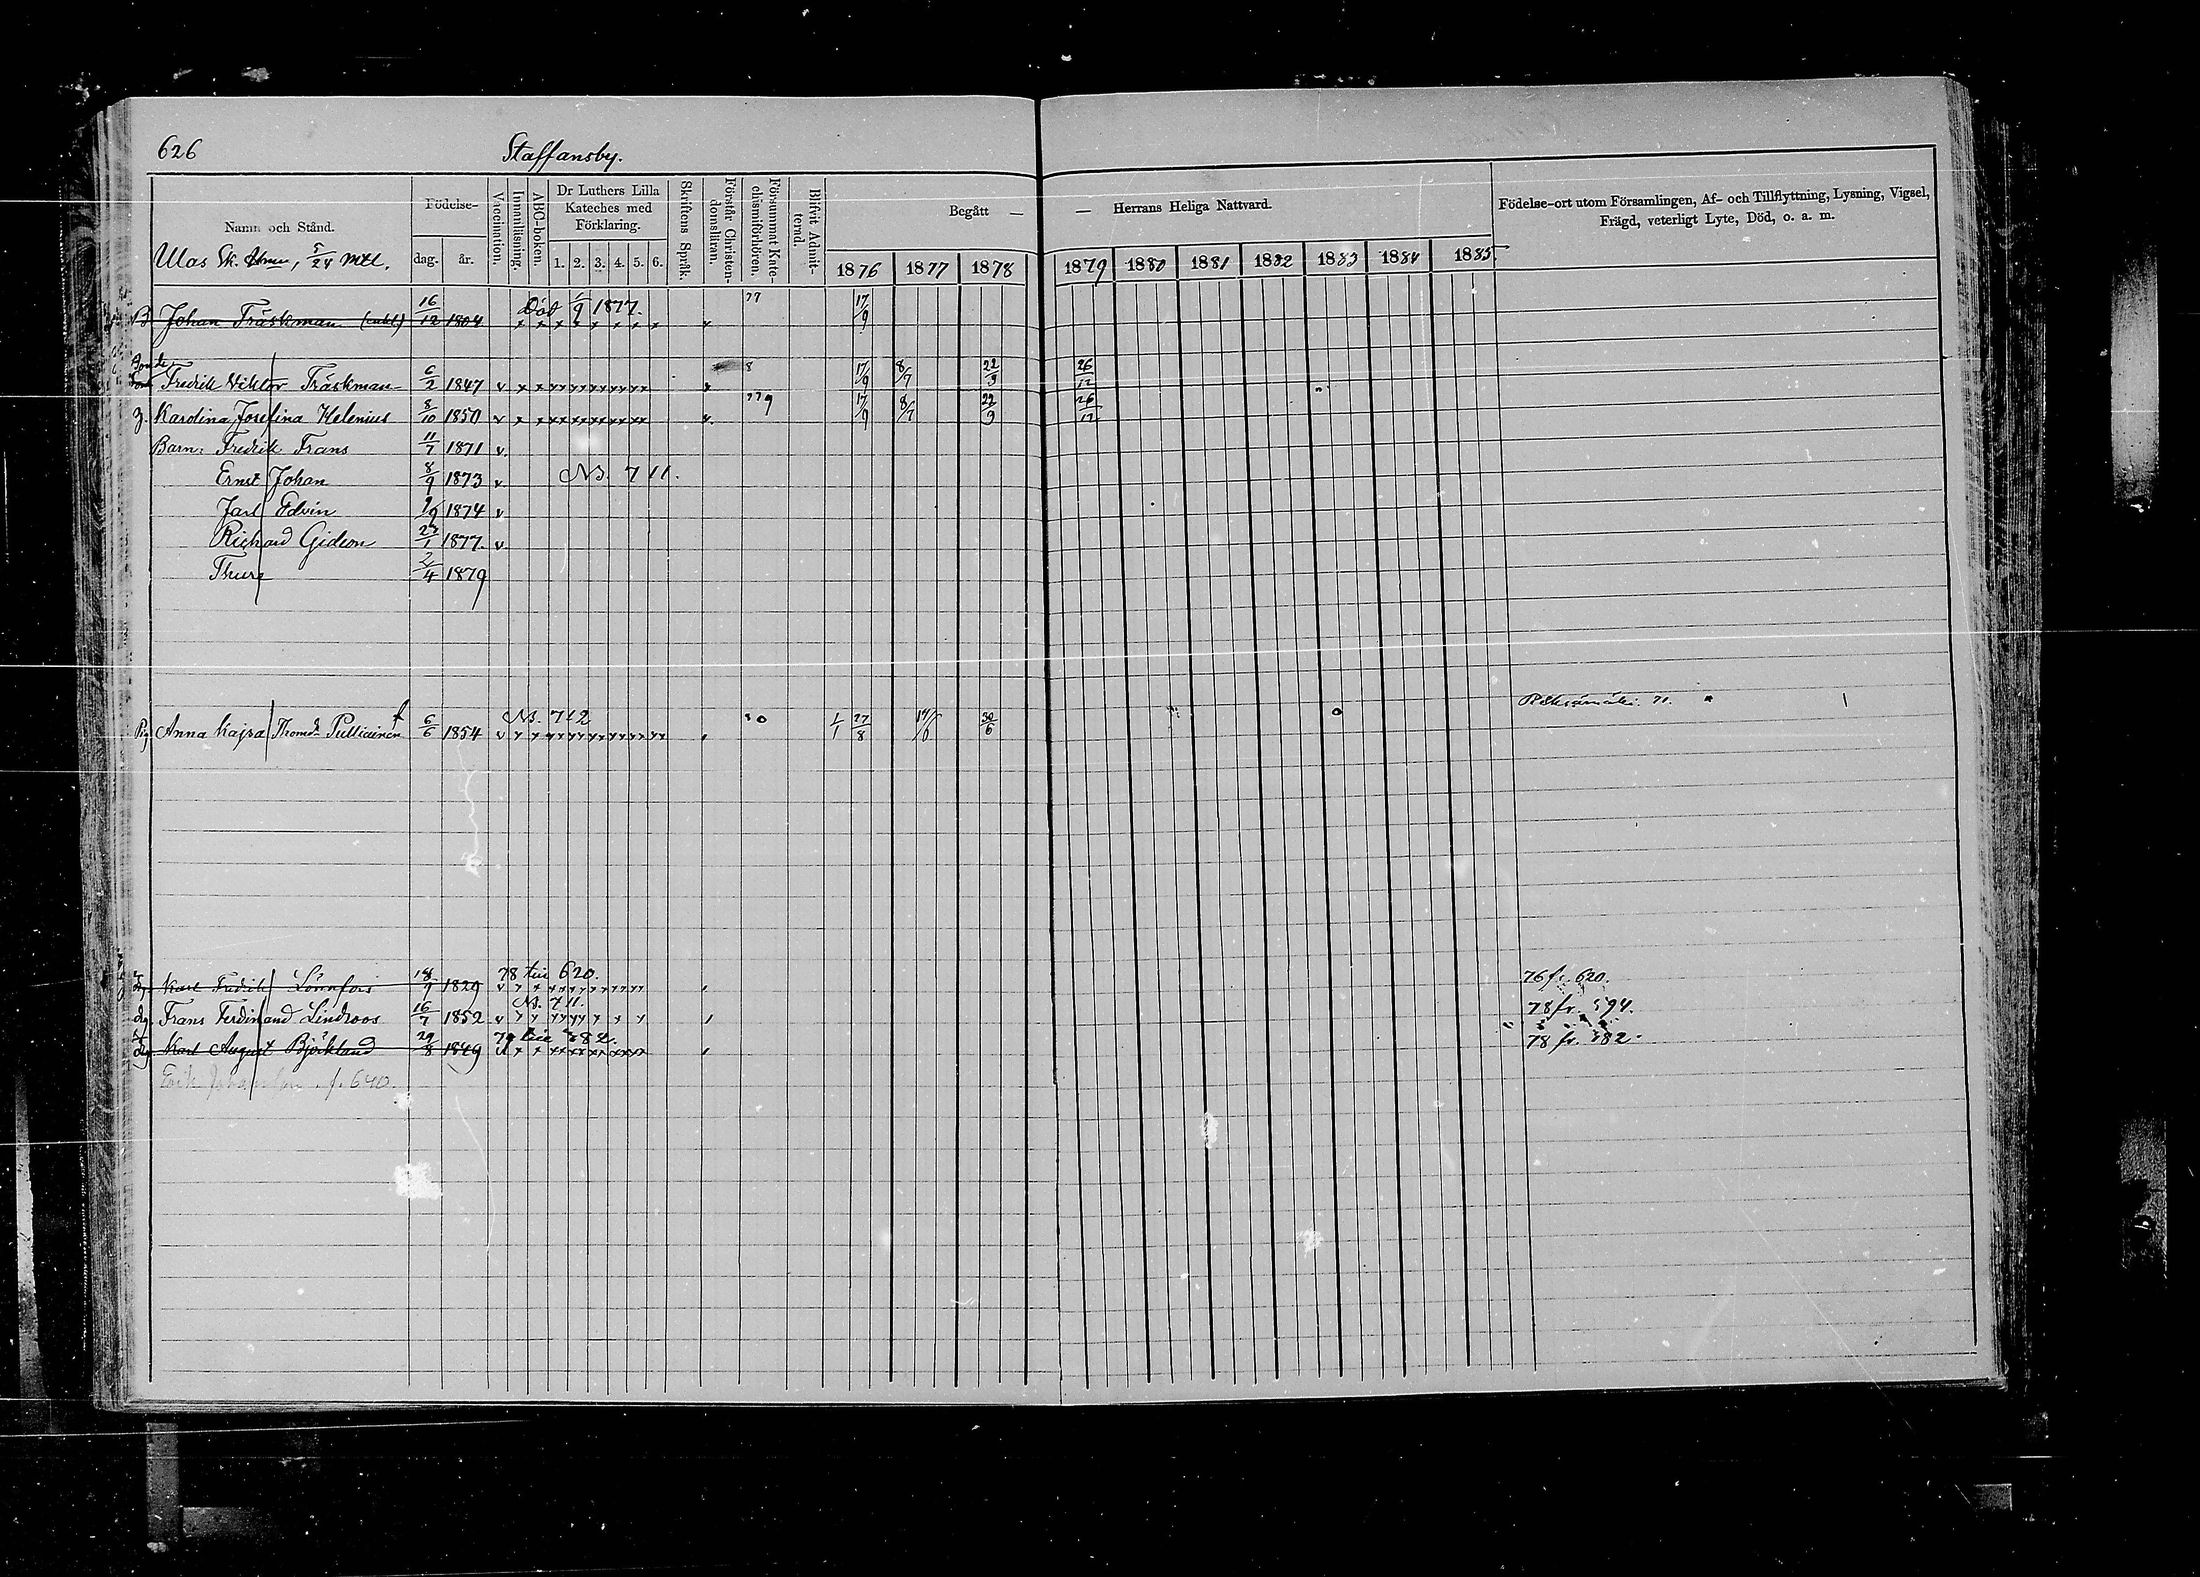 626 Staffansby.
Namn och Stånd. Födelse- dag. år. Vaccination. Innanläsning. ABC-boken. Dr Luthers Lilla Kateches med Förklaring. 1. 2. 3. 4. 5. 6. Skriftens Språk. Förstår Christendomsläran. Försummat Katechismiförhören. Blifvit Admitterad. Begått — — Herrans Heliga Nattvard. Födelse-ort utom Församlingen, Af- och Tillflyttning, Lysning, Vigsel, Frägd, veterligt Lyte, Död, o. a. m.
1876 1877 1878 1879 1880 1881 1882 1883 1884 1885
Ulas Sk. 5/24 mtl.
B. Johan Träskman 16/12 1804 Död 1/9 1877. 77 17/9
Bonde Fredrik Viktor Träskman 6/2 1847 v 8 17/9 8/7 22/9 26/12
h. Karolina Josefina Helenius 8/10 1850 v 779 17/9 8/7 22/9 26/12
Barn: Fredrik Frans 11/7 1871 v.
Ernst Johan 8/9 1873 v N.B. 711.
Jarl Edvin 1/9 1874 v
Richard Gideon 23/1 1877. v
Thure 2/4 1879
Pig Anna Kajsa Thomd. Pulliainen 6/6 1854 N.B. 712 1/1 27/8 30/6 Pieksämäki. 71.
Karl Fredrik Lönnfors 18/9 1829 78 till 620. 76 fr. 620.
drg. Frans Ferdinand Lindroos 16/7 1852 v N.B. 711. 78 fr. 594.
drg Karl August Björklund 29/8 1849 79 till 582. 78 fr. 582.
Erik Johansson f. 640.